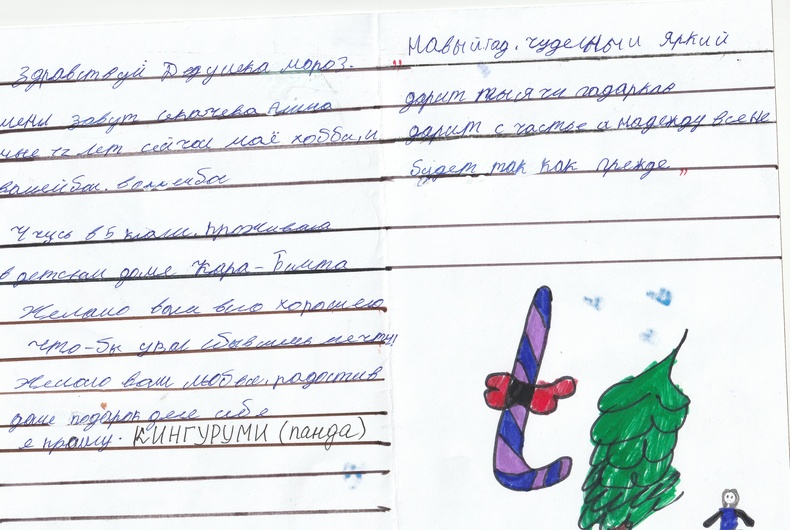 Здравствуй Дедушка мороз.
меня зовут Алина
мне 12 лет сейчас моё хобби,
Учусь в 5 класе. проживаю
в детском доме Кара-Балта
Желаю вам всго хорошего
что-бы у вас сбывались мечты!
Желаю вам радости в
доме подарок себе
я прашу. КИНГУРУМИ (панда)
"Навый гад. чудесный и яркий
дарит тысячи подарков
дарит счастье и надежду все не
будет так как прежде"